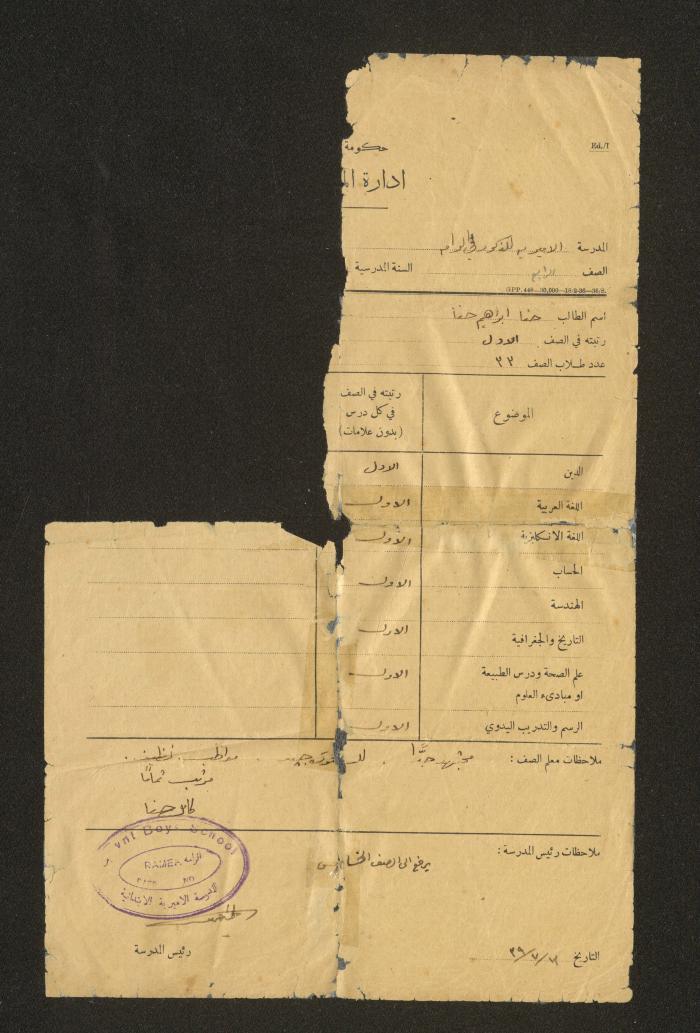 Ed./1
حكومة
ادارة الم
المدرسة الاميرية للذكور في الرامه
الصف الرابع السنة المدرسية
GPP. 448—30,000—18-2-36—36/S.
اسم الطالب حنا ابراهيم حنا
رتبته في الصف الاول
عدد طلاب الصف ٣٣
الموضوع رتبته في الصف في كل درس (بدون علامات)
الدين الاول
اللغة العربية الاول
اللغة الانكليزية الاول
الحساب الاول
الهندسة
التاريخ والجغرافية الاول
علم الصحة ودرس الطبيعة الاول
او مبادىء العلوم
الرسم والتدريب اليدوي الاول
ملاحظات معلم الصف : مجتهد جدًّا . جيد . مواظب . نظيف .
مرتب تمامًا
حنا
ملاحظات رئيس المدرسة : يرفع الى الصف الخامس
vnt Boys School
الرامه RAMEH
المدرسة الاميرية الابتدائية
رئيس المدرسة
التاريخ